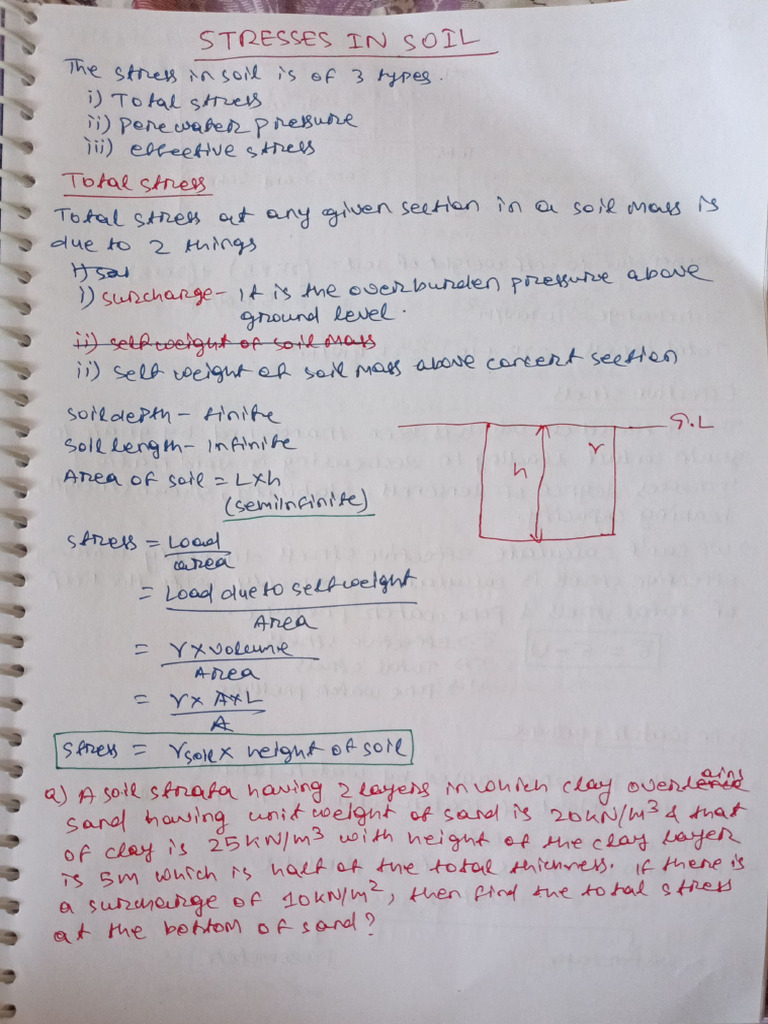 STRESSES IN SOIL
The stress in soil is of 3 types.
i) Total stress
ii) porewater pressure
iii) effective stress
Total stress
Total stress at any given section in a soil mass is
due to 2 things
i) surcharge - it is the overburden pressure above
ground level.
ii) self weight of soil mass
ii) self weight of soil mass above concert section
Soil depth - finite
Soil length - infinite
Area of soil = L×h
(semiinfinite)
G.L
h
r
stress = Load
area
= Load due to self weight
Area
= r × volume
Area
= r × A × L
A
stress = rsoil × height of soil
a) A soil strata having 2 layers in which clay overlains
sand having unit weight of sand is 20kN/m³ & that
of clay is 25kN/m³ with height of the clay layer
is 5m which is half of the total thickness. if there is
a surcharge of 10kN/m², then find the total stress
at the bottom of sand?